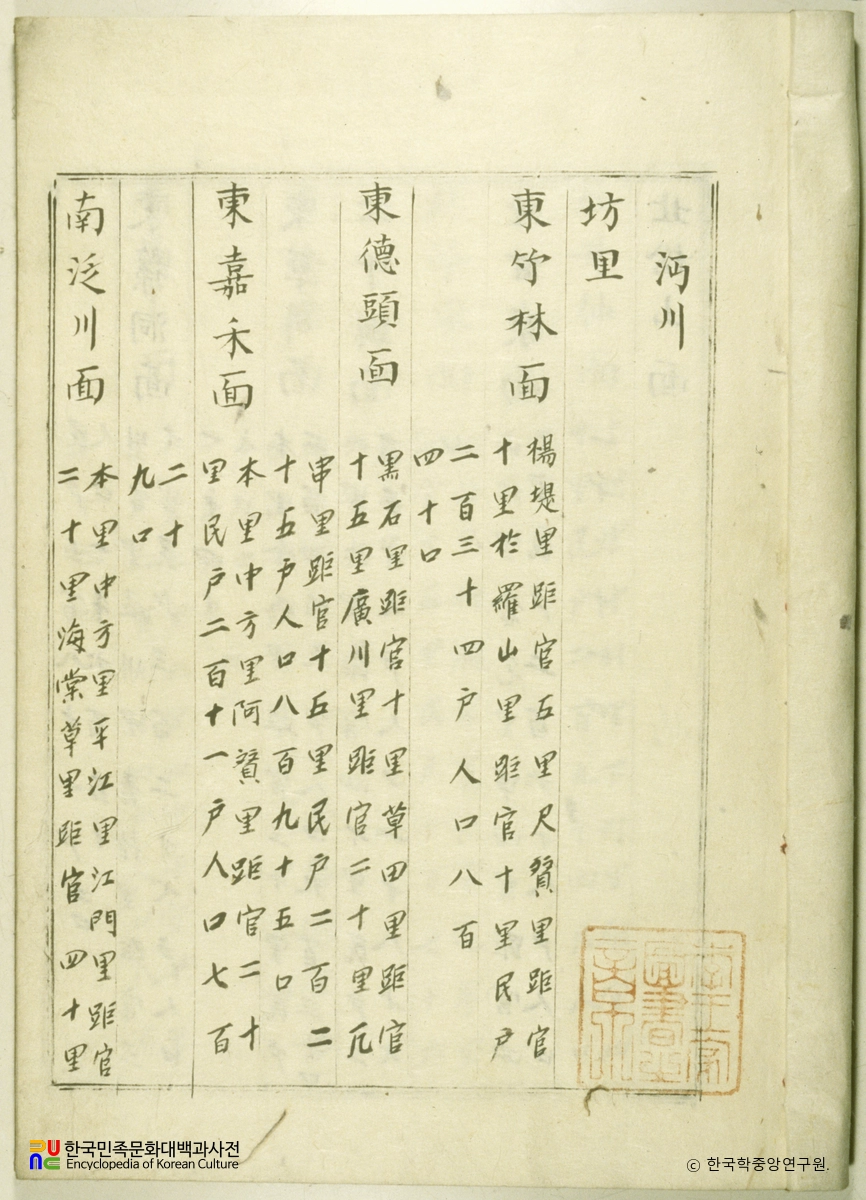 沔川
坊里
東竹林面 楊堤里距官五里尺贇里距官
十里於羅山里距官十里民戶
二百三十四戶人口八百
四十口
東德頭面 黑石里距官十里草田里距官
十五里廣川里距官二十里瓦
串里距官十五里民戶二百二
十五戶人口八百九十五口
東嘉禾面 本里中方里阿贇里距官二十
里民戶二百十一戶人口七百
二十
九口
南泛川面 本里中方里平江里江門里距官
二十里海棠草里距官四十里
李王家
圖書之
章
한국민족문화대백과사전
Encyclopedia of Korean Culture
© 한국학중앙연구원.